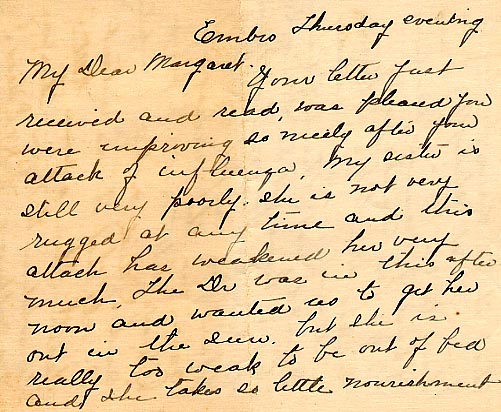 Embro Thursday evening
My Dear Margaret.
Your letter just
received and read, was pleased you
were improving so nicely after your
attack of influenza. My sister is
still very poorly. she is not very
rugged at any time and this
attack has weakened her very
much. The Dr was in this after
noon and wanted us to get her
out in the sun. but she is
really too weak to be out of bed
and she takes so little nourishment